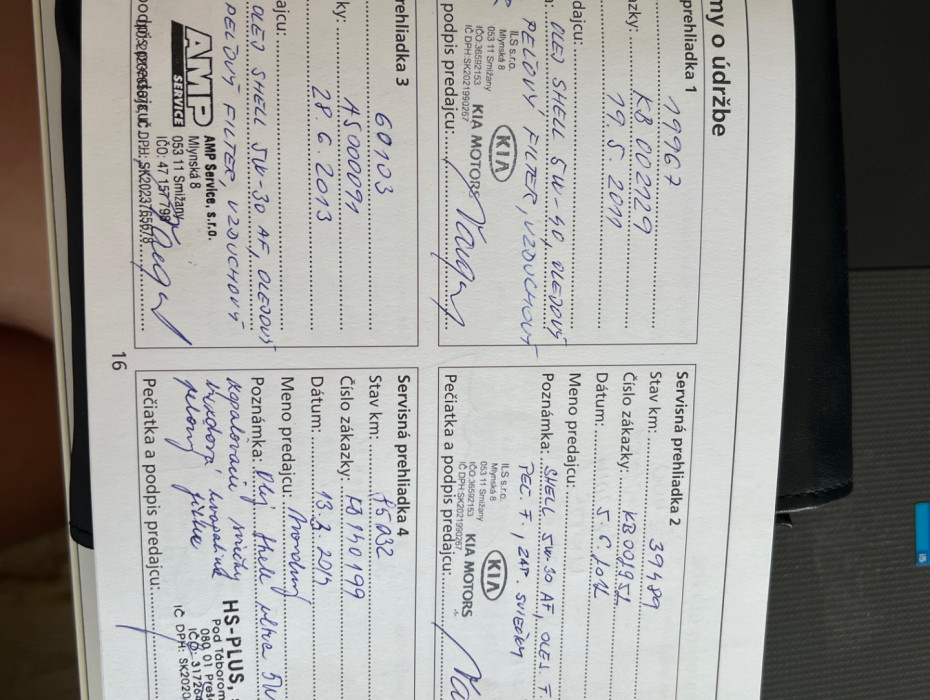 my o údržbe
prehliadka 1
19967
zky: KB 002129
19. 5. 2011
dajcu:
a: OLEJ SHELL 5W-40, OLEJOVÝ
PEĽOVÝ FILTER, VZDUCHOVÝ
ILS s.r.o.
Mlynská 8
053 11 Smižany
IČO:36592153
IČ DPH:SK2021990267
KIA
KIA MOTORS
podpis predajcu:
Servisná prehliadka 2
Stav km: 39489
Číslo zákazky: KB001951
Dátum: 5. 6. 2012
Meno predajcu:
Poznámka: SHELL 5W-30 AF, OLEJ. F
PEL. F, ZAP. SVIEČKY
ILS s.r.o.
Mlynská 8
053 11 Smižany
IČO:36592153
IČ DPH:SK2021990267
KIA
KIA MOTORS
Pečiatka a podpis predajcu:
rehliadka 3
60103
ky: AS000091
28. 6. 2013
ajcu:
OLEJ SHELL 5W-30 AF, OLEJOVÝ
PEĽOVÝ FILTER, VZDUCHOVÝ
AMP
SERVICE
AMP Service, s.r.o.
Mlynská 8
053 11 Smižany
IČO: 47 157 799
IČ DPH: SK2023765678
podpis predajcu:
Servisná prehliadka 4
Stav km: 75032
Číslo zákazky:
Dátum: 13. 3. 2014
Meno predajcu:
Poznámka: Olej Shell ultra 5W
zapaľovacie sviečky
peľový filter
HS-PLUS,
Pod Táborom
080 01 Preš
IČO: 317264
IČ DPH: SK2020
Pečiatka a podpis predajcu:
16